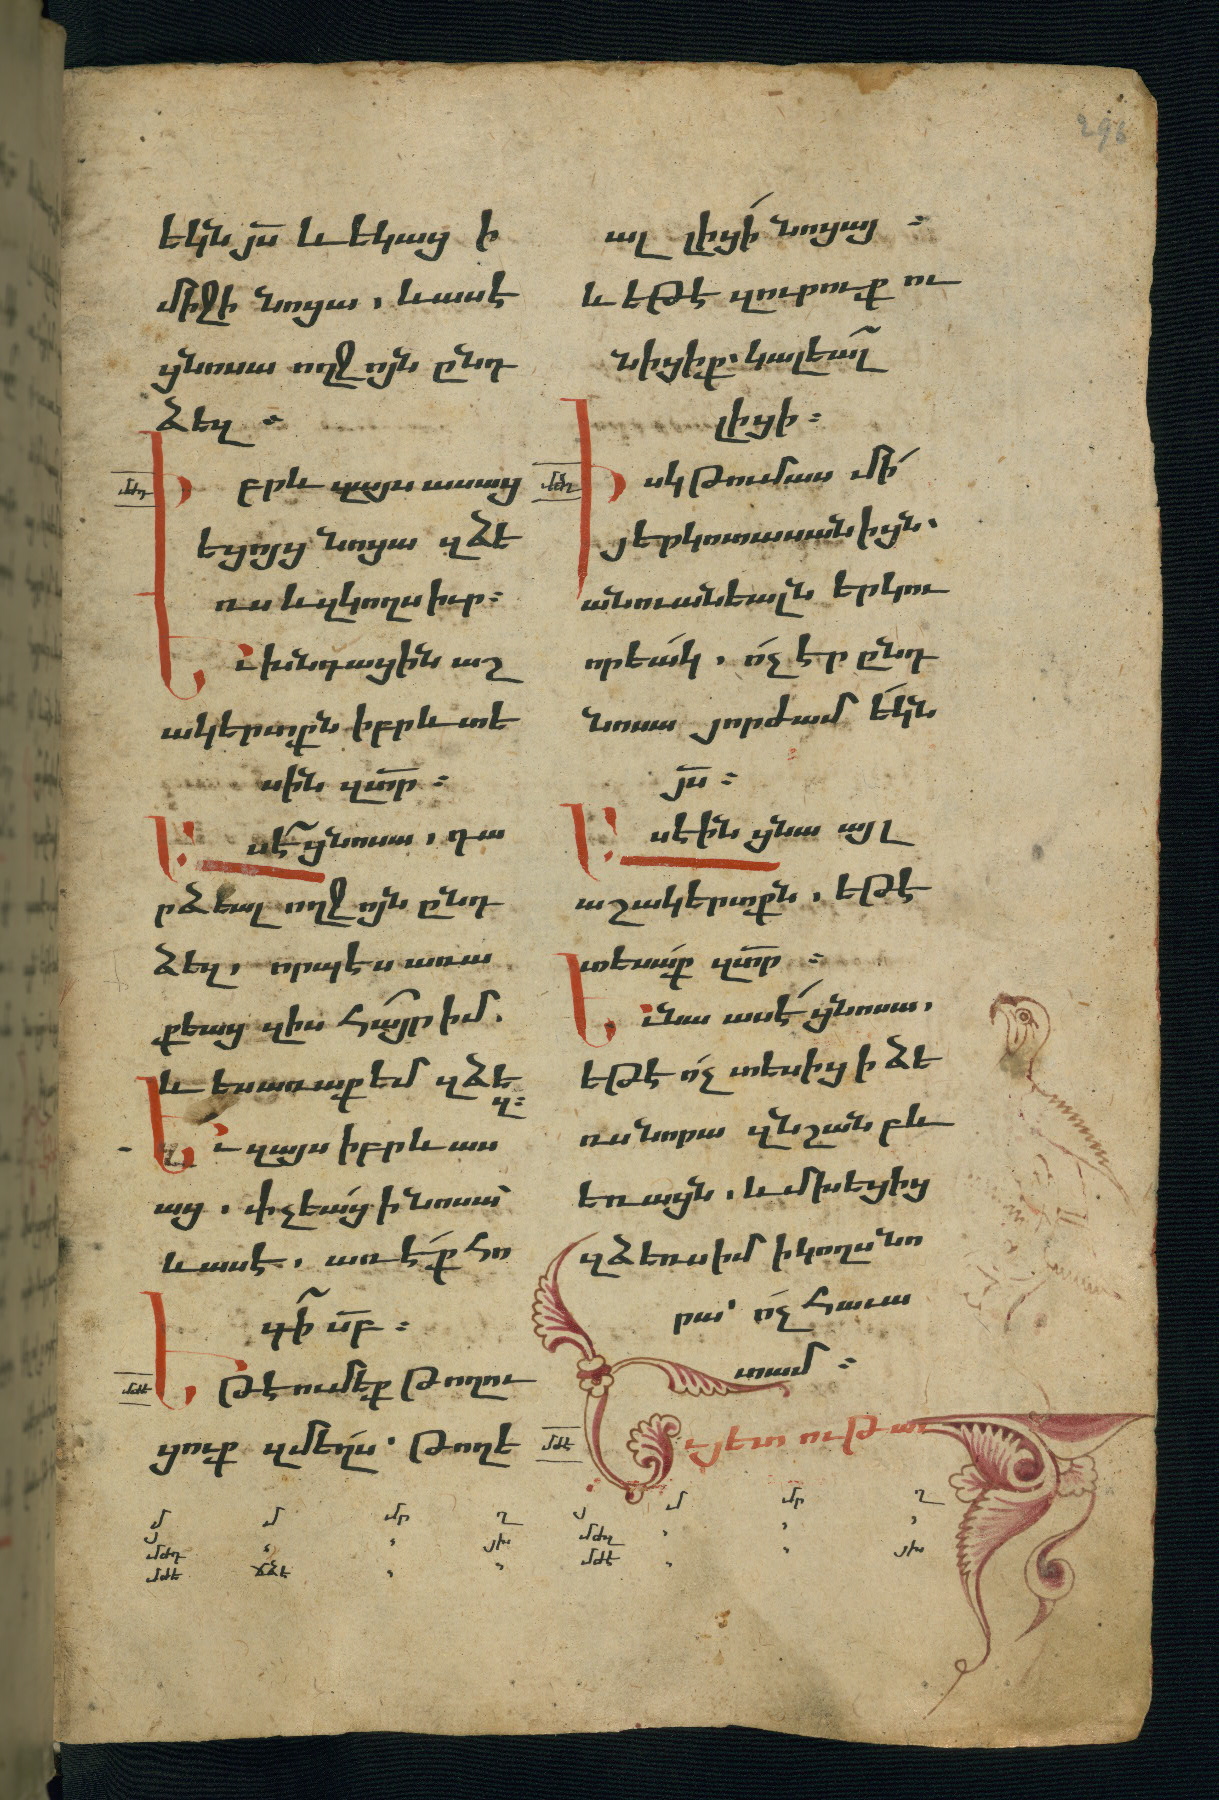 296
եկն յս̅ և եկաց ի
միջի նոցա, և ասէ
ցնոսա ողջոյն ընդ
ձեզ ։
Իբրև զայս ասաց
եցոյց նոցա զձե
ռս և զկողս իւր։
Եւ խնդացին աշ
ակերտքն իբրև տե
սին զտր̅ ։
Ասէ ցնոսա, դա
րձեալ ողջոյն ընդ
ձեզ, որպէս առա
քեաց զիս հայր իմ.
և ես առաքեմ զձե
զ։
Եւ զայս իբրև աս
աց, փչեաց ի նոսա՝
և ասէ, առէք հո
գի սբ̅ ։
Եթէ ումեք թողու
ցուք զմեղս՝ թողե
ալ լիցի նոցա ։
և եթէ զուրուք ու
նիցիք՝ կալեալ
լիցի ։
Իսկ թումաս մի
յերկոտասանիցն՝
անուանեալն երկու
որեակ, ոչ էր ընդ
նոսա յորժամ եկն
յս̅ ։
Ասեին ցնա այլ
աշակերտքն, եթէ
տեսաք զտր̅ ։
Եւ նա ասէ ցնոսա,
եթէ ոչ տեսից ի ձե
ռս նորա զնշան բև
եռացն, և մխեցից
զձեռս իմ ի կողս նո
րա՝ ոչ հաւա
տամ ։
Եւ յետ ութ աւ
մ մ մր ղ
յ մ մր ղ